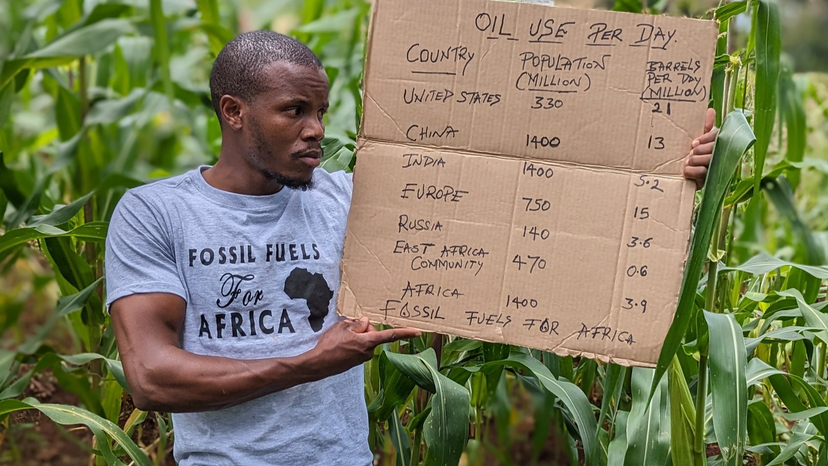 FOSSIL FUELS
For
AFRICA
OIL USE PER DAY.
COUNTRY POPULATION (MILLION) BARRELS PER DAY (MILLION)
UNITED STATES 330 21
CHINA 1400 13
INDIA 1400 5.2
EUROPE 750 15
RUSSIA 140 3.6
EAST AFRICA COMMUNITY 470 0.6
AFRICA 1400 3.9
FOSSIL FUELS FOR AFRICA